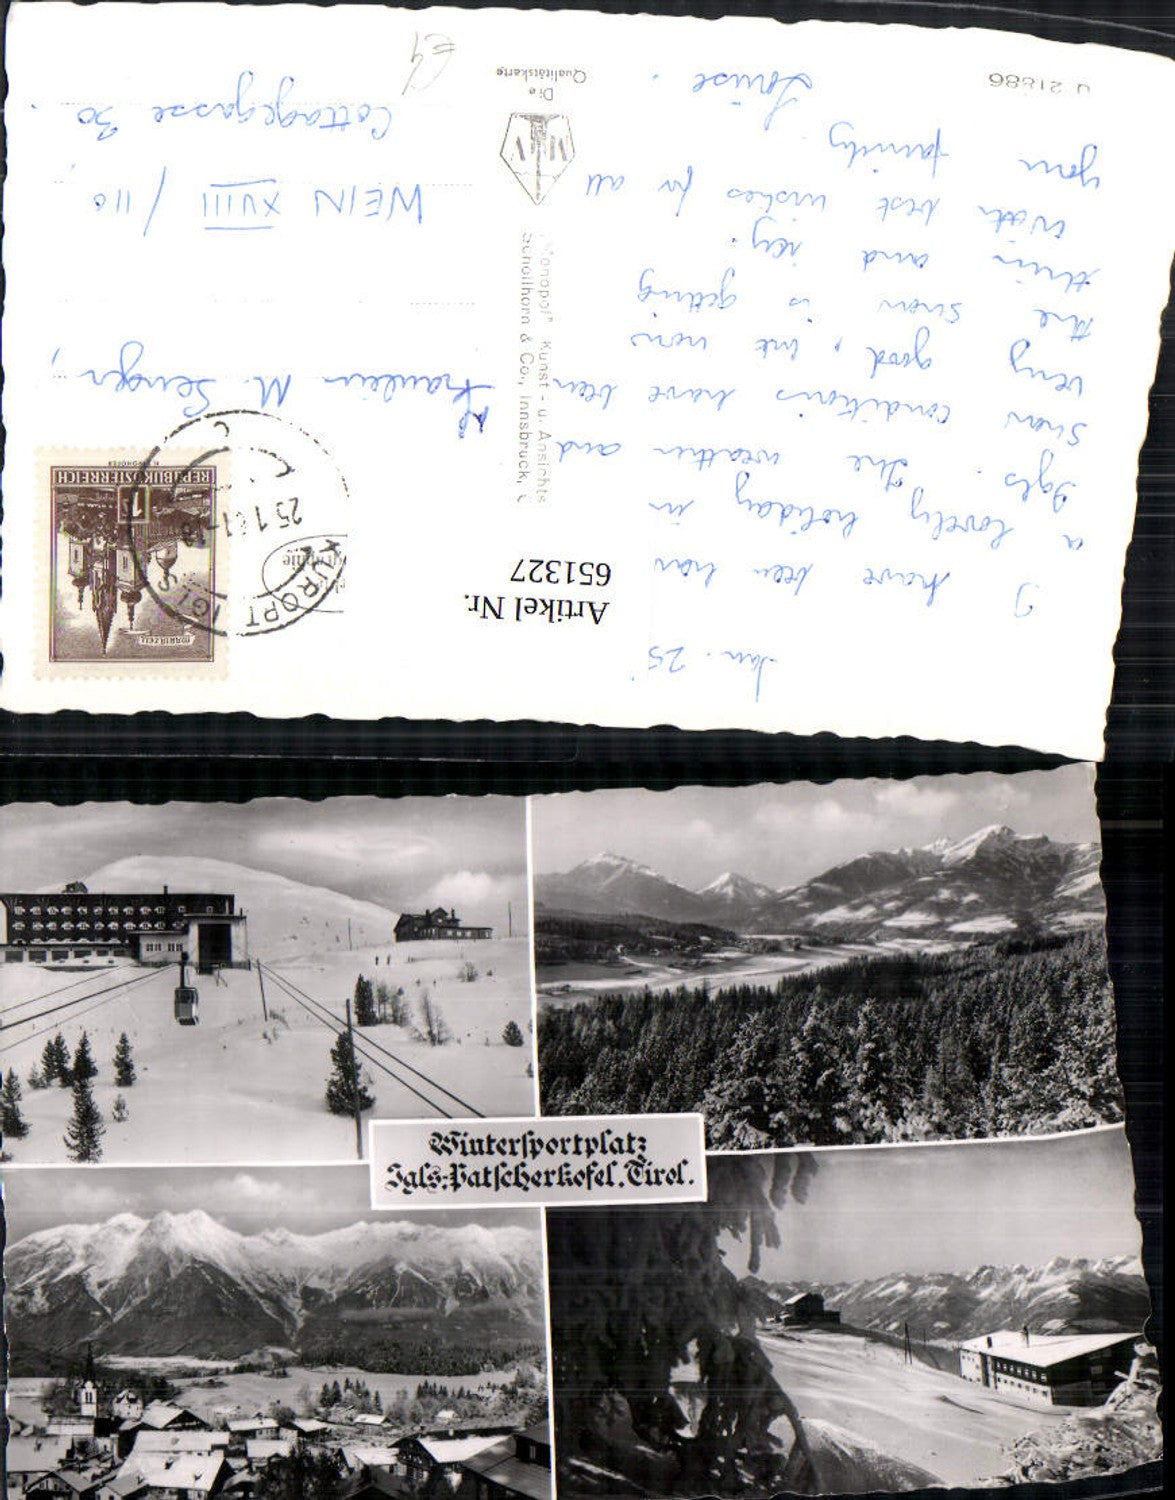 Jan. 25
I have been having
a lovely holiday in
Igls. The weather and
snow conditions have been
very good, but now
the snow is getting
thin and icy.
With best wishes for all
your family.
Louise.
Fräulein M. Senger,
WEIN XVIII / 110,
Cottagegasse 30.
U 21886
Die
Qualitätskarte
"Monopol" Kunst- u. Ansichts
Schöllhorn & Co., Innsbruck,
Artikel Nr.
651327
MARIAZELL
1
REPUBLIK ÖSTERREICH
KURORT IGLS
25.1.61-18
Wintersportplatz
Igls-Patscherkofel, Tirol.